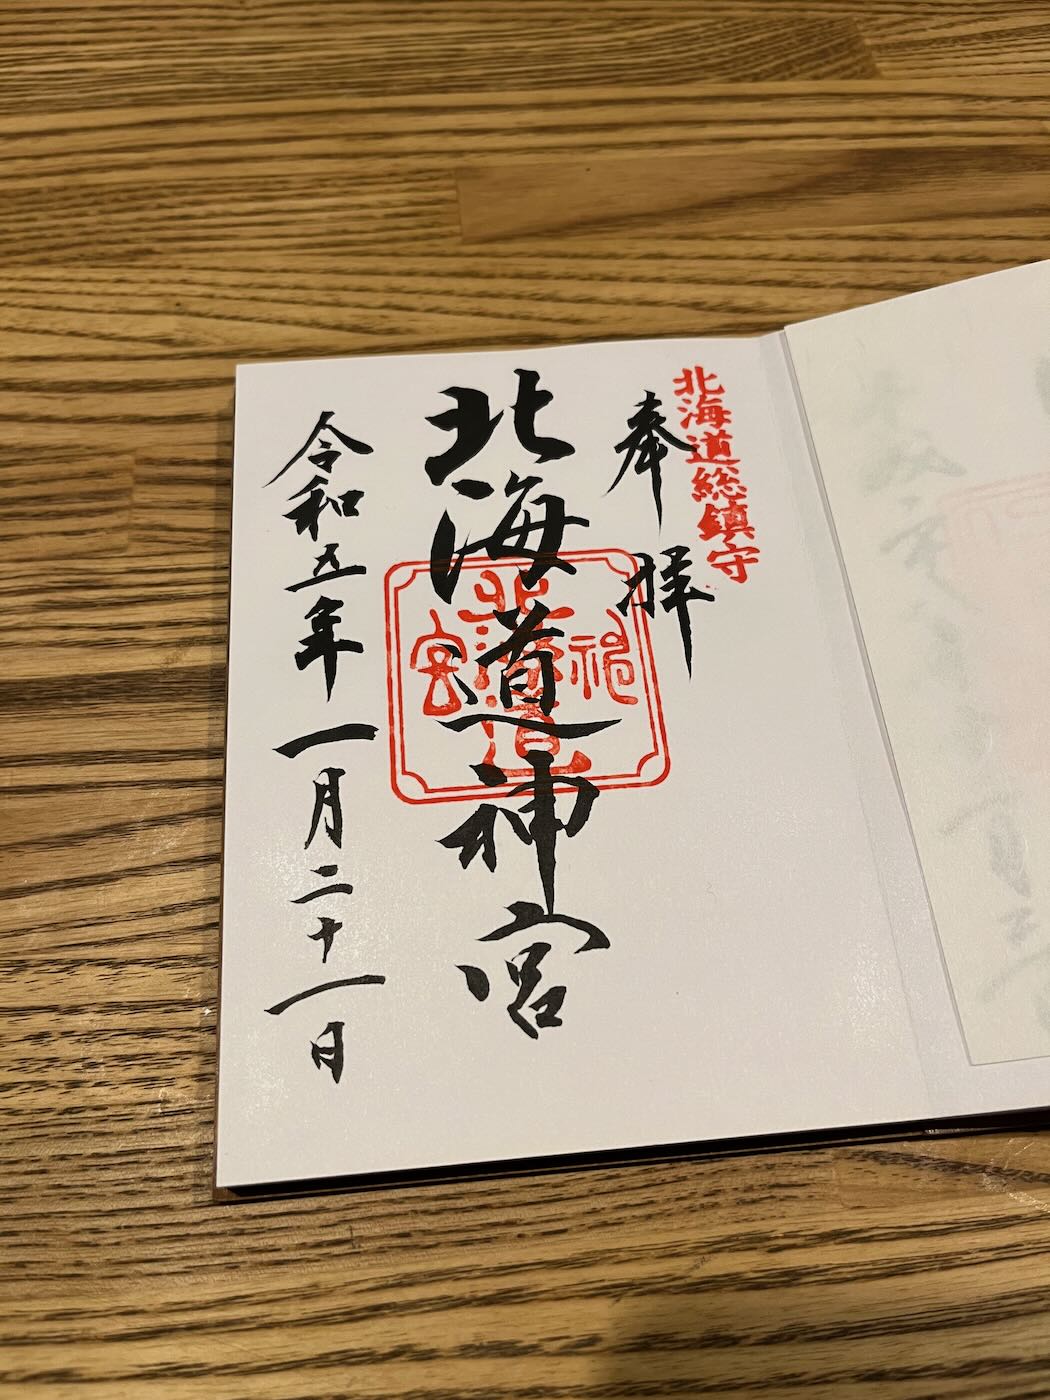 北海道総鎮守
奉拝
北海道神宮
北海道神宮
令和五年一月二十一日